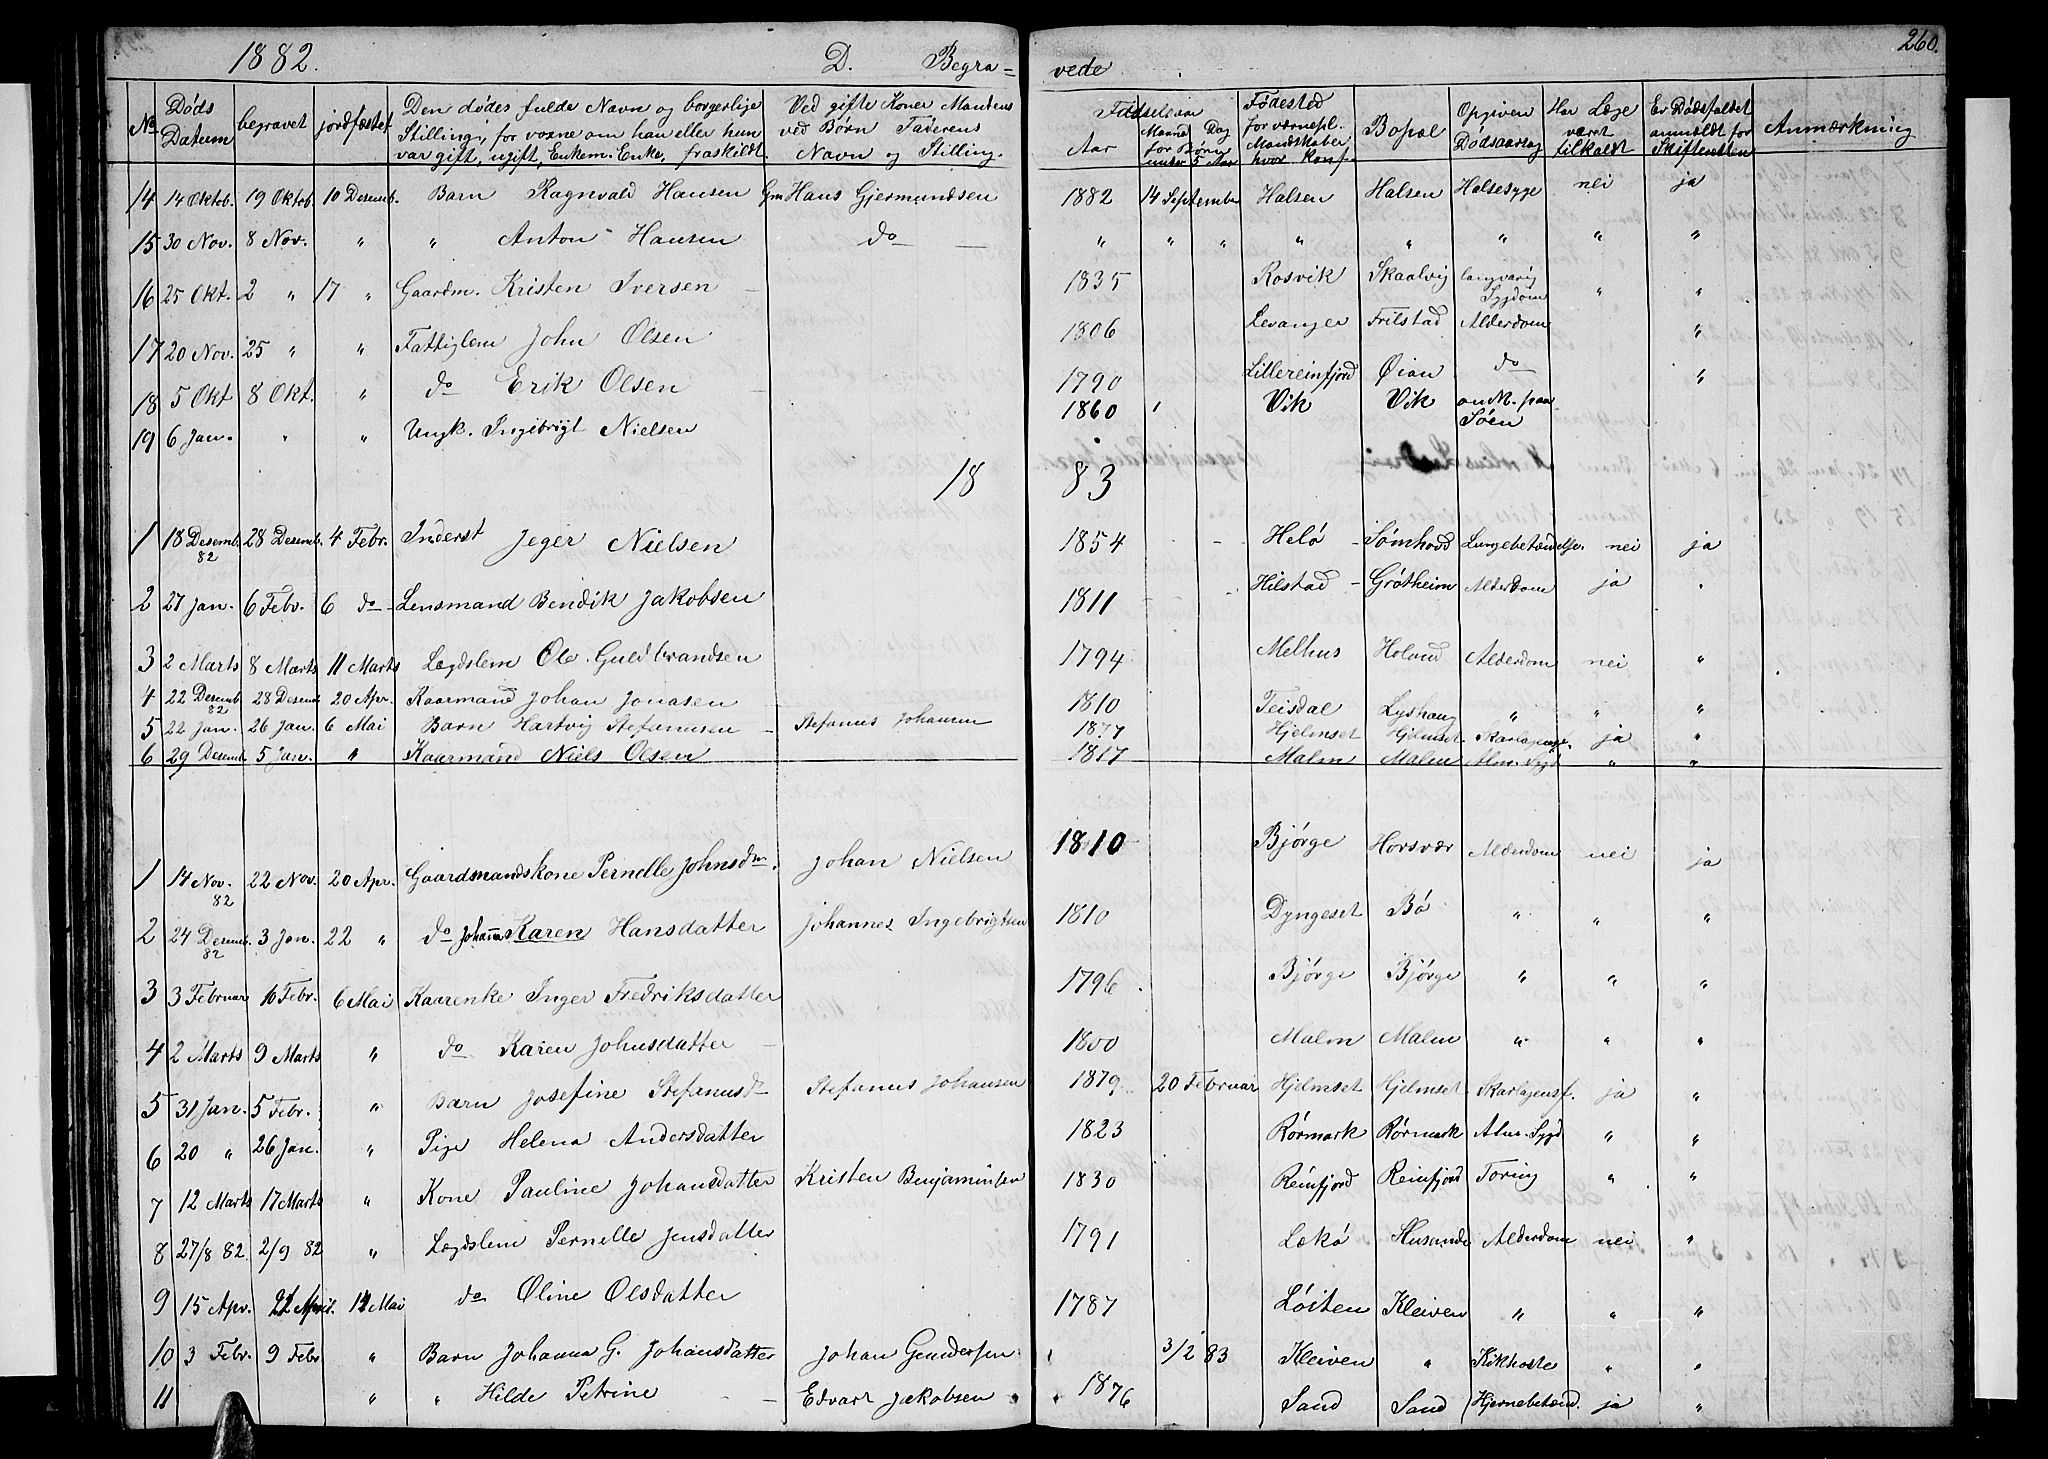 1882. D. Begra= vede 260.
No Döds Datum begravet jordfæstet Den dødes fulde Navn og borgerlige Stilling, for voxne om han eller hun var gift, ugift, Enkem. Enke, fraskildt. Ved gifte Koner Mandens ved Børn Faderens Navn og Stilling. Aar Maaned for Børn under 5 Aar Dag Fødested for værnepl. Mandskaber, hvor konf. Bopæl Opgiven Dødsaarsag Har Læge været tilkaldt Er Dødsfaldet anmeldt for Skifteretten Anmærkning
14 14 Oktob. 19 Oktob. 10 Desemb. Barn Ragnvald Hansen Gm Hans Gjermundsen 1882 14 September Halsen Halsen Halsesyge nei ja
15 30 Nov. 8 Nov. " " Anton Hansen do — " " " " " " " "
16 25 Okt. 2 " 17 " Gaardm. Kristen Iversen 1835 Rosvik Skaalvig langvarig Sygdom " "
17 20 Nov. 25 " " Fattiglem John Olsen 1806 Levanger Frilstad Alderdom "
18 5 Okt 8 Okt. " do Erik Olsen 1790 Lillereinfjord Øian do "
19 6 Jan. " " Ungk. Ingebrigt Nielsen 1860 Vik Vik omk. paa Søen
18 83
1 18 Desemb. 82 28 Desemb. 4 Febr. Inderst Jeger Nielsen 1854 Helö Sömhovd Lungebetændelse. nei ja
2 27 Jan. 6 Febr. 6 do Lensmand Bendik Jakobsen 1811 Hilstad Grötheim Alderdom ja "
3 2 Marts 8 Marts 11 Marts Lægdslem Ole Guldbrandsen 1794 Melhus Holand Alderdom nei "
4 22 Desemb 82 28 Desemb 20 Apr. Kaarmand Johan Jonasen 1810 Teisdal Lyshaug " " "
5 22 Jan. 26 Jan. 6 Mai Barn Hartvig Stefanusen Stefanus Johansen 1877 Hjelmset Hjelmset Skarlagensf. ja "
6 29 Desemb 5 Jan. " Kaarmand Niels Olsen 1817 Malm Malm Alm. Sygd " "
1 14 Nov. 82 22 Nov. 20 Apr. Gaardmandskone Pernelle Johnsdtr. Johan Nielsen 1810 Bjørge Horsvær Alderdom nei ja
2 24 Desemb. 82 3 Jan. 22 " do Johanna Karen Hansdatter Johannes Ingebrigtsen 1810 Dyngeset Bö " " "
3 3 Februar 10 Febr. 6 Mai Kaarenke Inger Fredriksdatter 1796 Bjørge Bjørge " " "
4 2 Marts 9 Marts " do Karen Johnsdatter 1800 Malm Malm " " "
5 31 Jan. 5 Febr. " Barn Josefine Stefanusd Stefanus Johansen 1879 20 Februar Hjelmset Hjelmset Skarlagensf. ja "
6 20 " 26 Jan. " Pige Helena Andersdatter 1823 Rörmark Rörmark Alm. Sygd " "
7 12 Marts 17 Marts " Kone Pauline Johansdatter Kristen Benjaminsen 1830 Reinfjord Reinfjord Toring " "
8 27/8 82 2/9 82 " Lægdslem Pernelle Jensdatter 1791 Lekö Husande Alderdom nei "
9 15 Apr. 22 April. 14 Mai do Oline Olsdatter 1787 Löiten Kleiven " " "
10 3 Febr. 9 Febr " Barn Johanna G. Johansdatter Johan Gundersen 3/2 83 Kleiven " Kikhoste " "
11 " " Hilde Petrine — Edvart Jakobsen 1876 Sand Sand Hjernebetænd. ja "